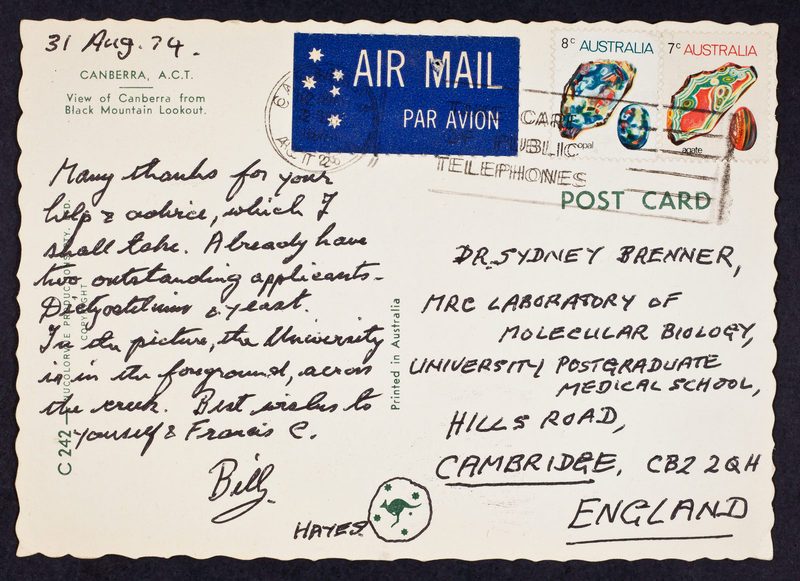 31 Aug. 74.
CANBERRA, A.C.T.
View of Canberra from
Black Mountain Lookout.
AIR MAIL
PAR AVION
8c AUSTRALIA
opal
7c AUSTRALIA
agate
TAKE CARE
OF PUBLIC
TELEPHONES
POST CARD
Many thanks for your
help & advice, which I
shall take. Already have
two outstanding applicants -
Dictyostelium & yeast.
In the picture, the University
is in the foreground, across
the creek. Best wishes to
yourself & Francis C.
Bill
HAYES
C 242
COPYRIGHT
Printed in Australia
DR. SYDNEY BRENNER,
MRC LABORATORY OF
MOLECULAR BIOLOGY,
UNIVERSITY POSTGRADUATE
MEDICAL SCHOOL,
HILLS ROAD,
CAMBRIDGE, CB2 2QH
ENGLAND